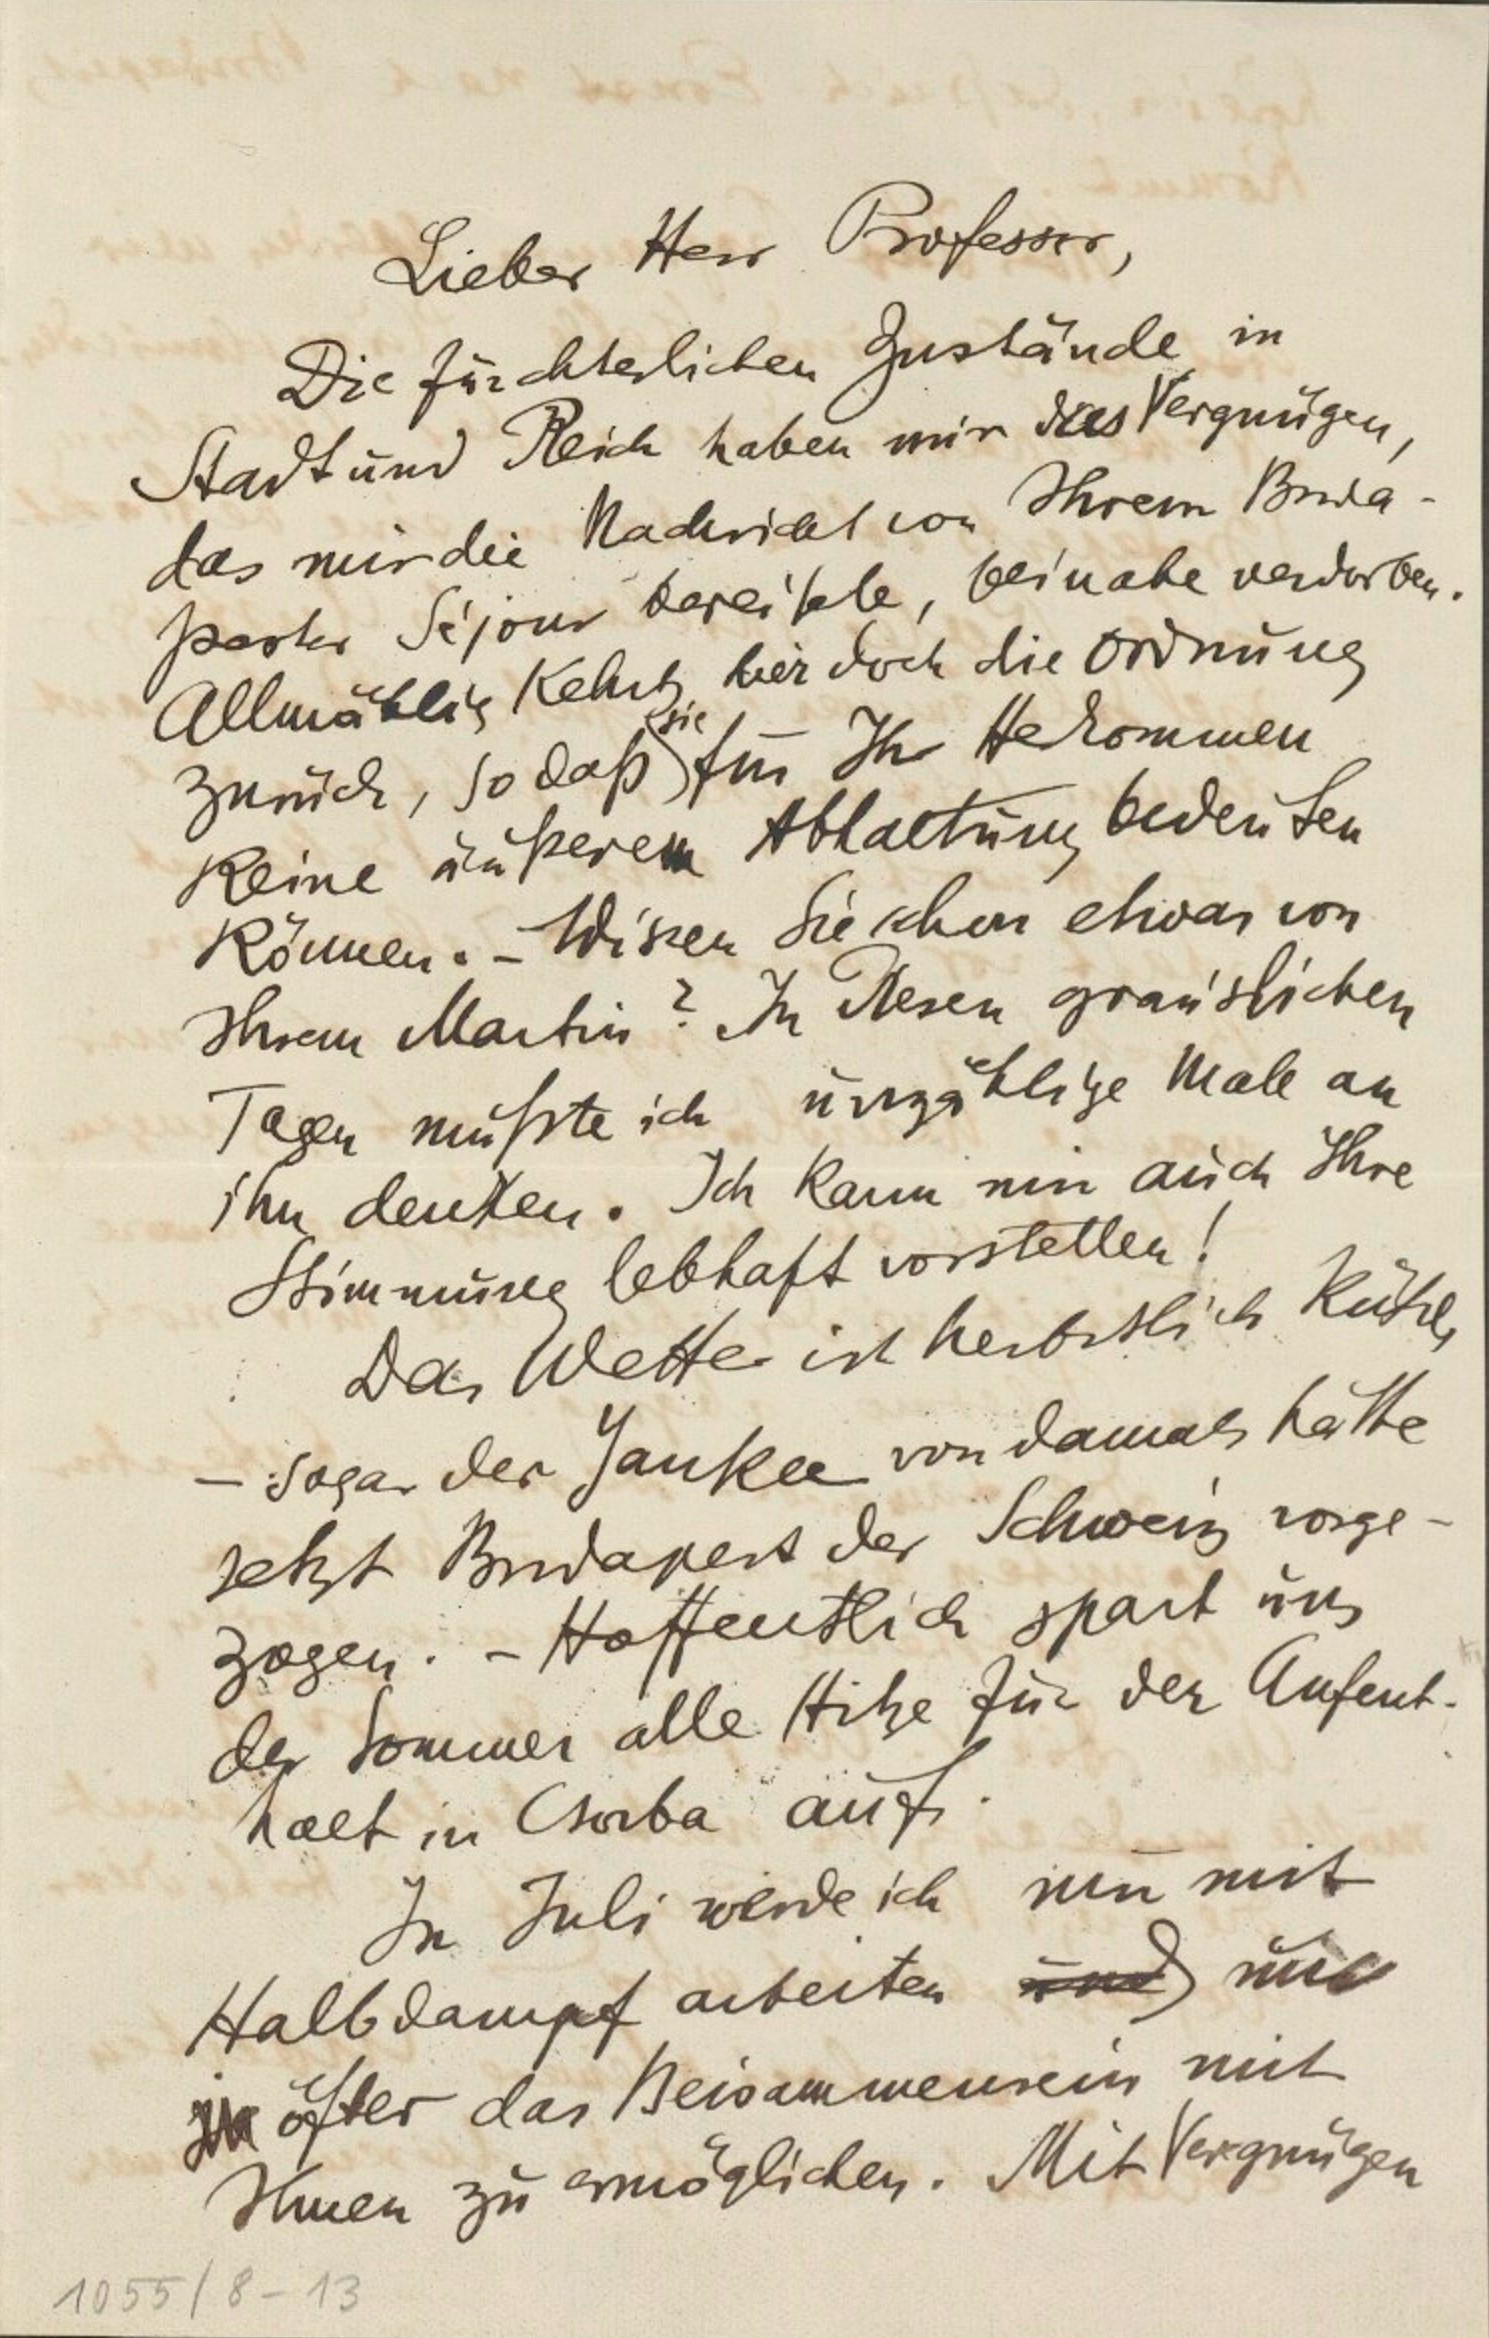 Lieber Herr Professor,
Die fürchterlichen Zustände in
Stadt und Reich haben mir das Vergnügen,
das mir die Nachricht von Ihrem Buda-
pester Séjour bereitete, beinahe verdorben.
Allmählig kehrt hier doch die Ordnung
zurück, so daß sie für Ihr Herkommen
keine äußere Abhaltung bedeuten
können. – Wissen Sie schon etwas von
Ihrem Martin? In diesen grauslichen
Tagen mußte ich unzählige Male an
ihn denken. Ich kann mir auch Ihre
Stimmung lebhaft vorstellen!
Das Wetter ist herbstlich kühl,
– sogar der Yankee von damals hätte
jetzt Budapest der Schweiz vorge-
zogen. – Hoffentlich spart uns
der Sommer alle Hitze für den Aufent-
halt in Csorba auf.
In Juli werde ich nur mit
Halbdampf arbeiten und um
öfter das Beisammensein mit
Ihnen zu ermöglichen. Mit Vergnügen
1055/8-13